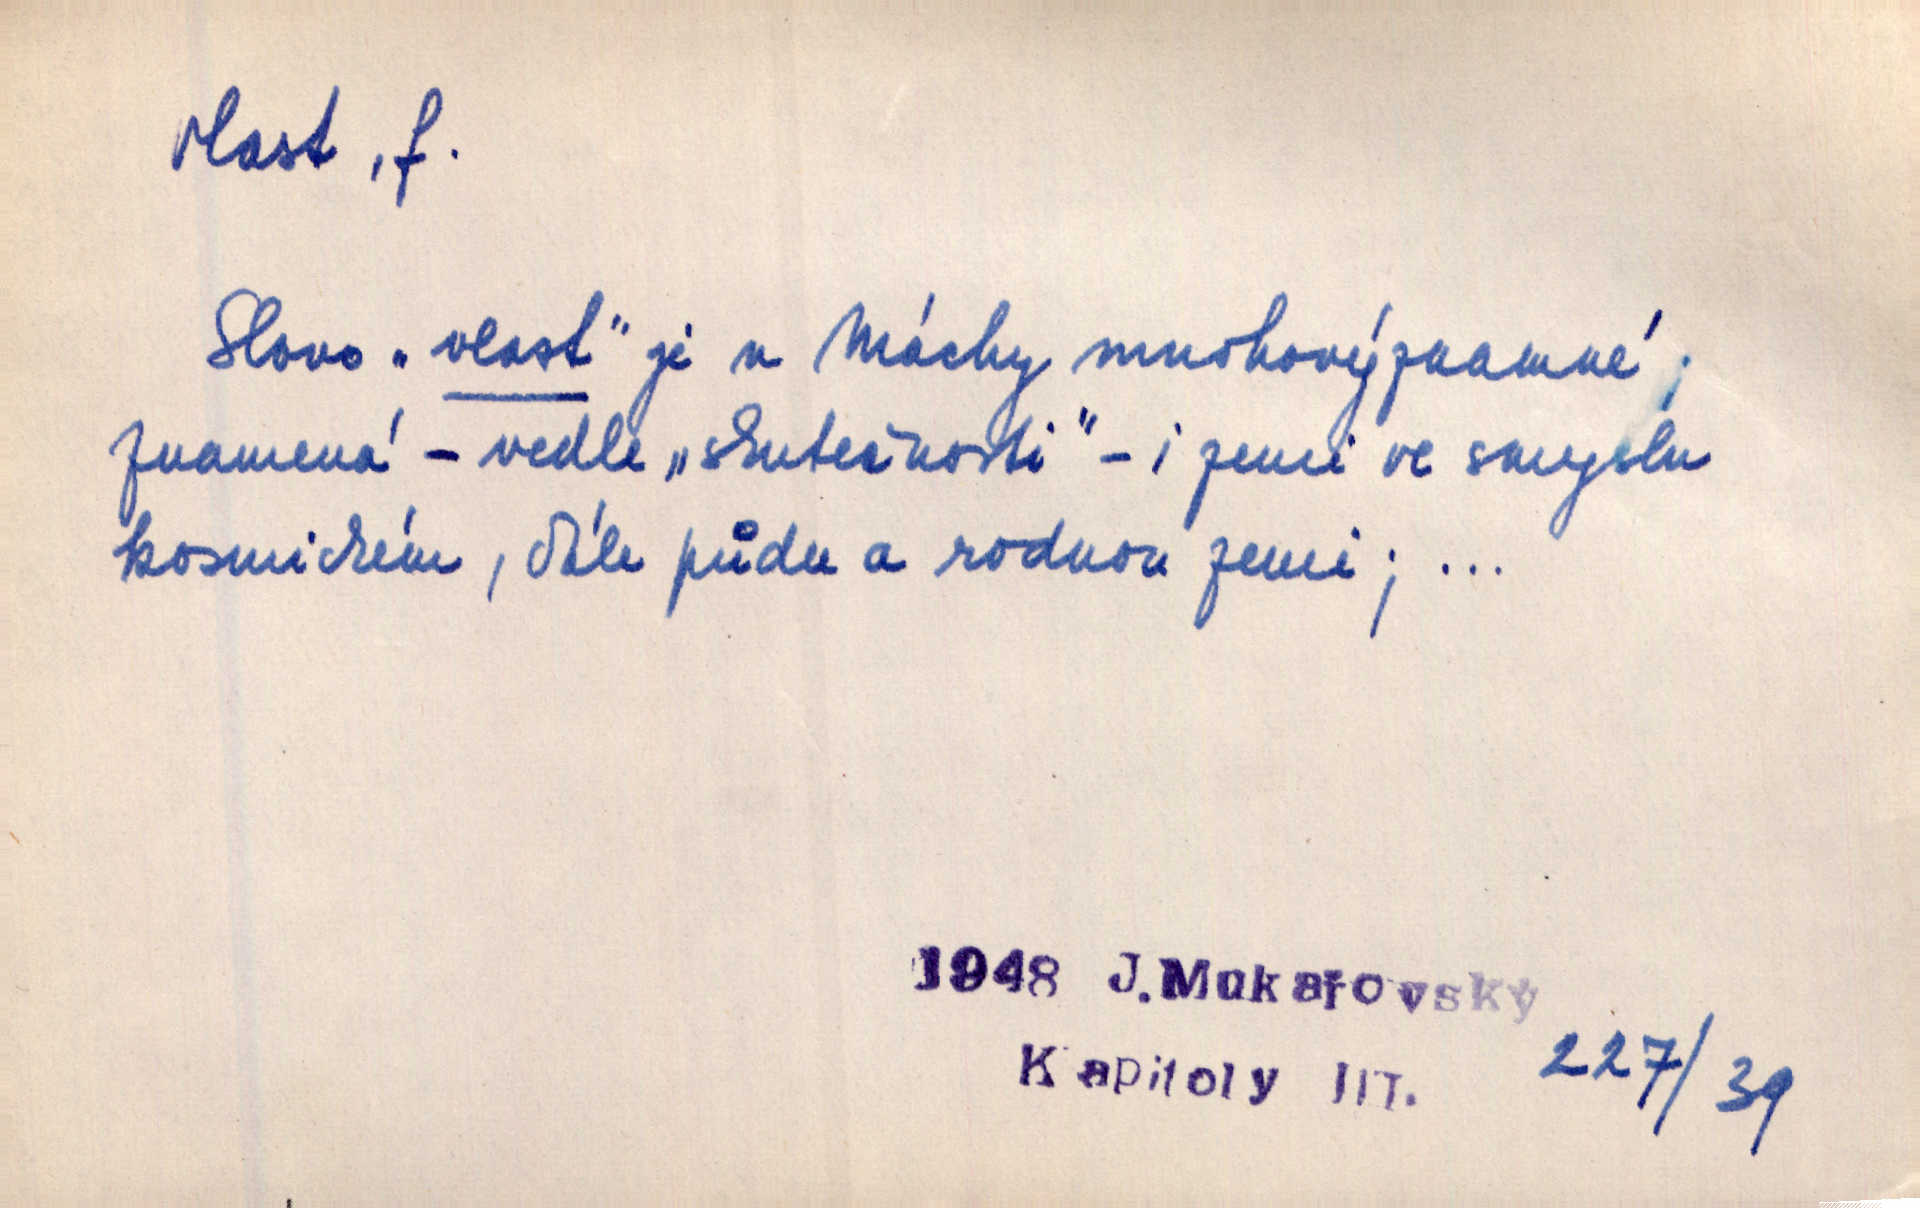 vlast, f.
Slovo „vlast" je u Máchy mnohovýznamné;
znamená – vedle „skutečnosti" – i zemi ve smyslu
kosmickém, dále půdu a rodnou zemi; ...
1948 J.Mukařovský
Kapitoly III.
227/39